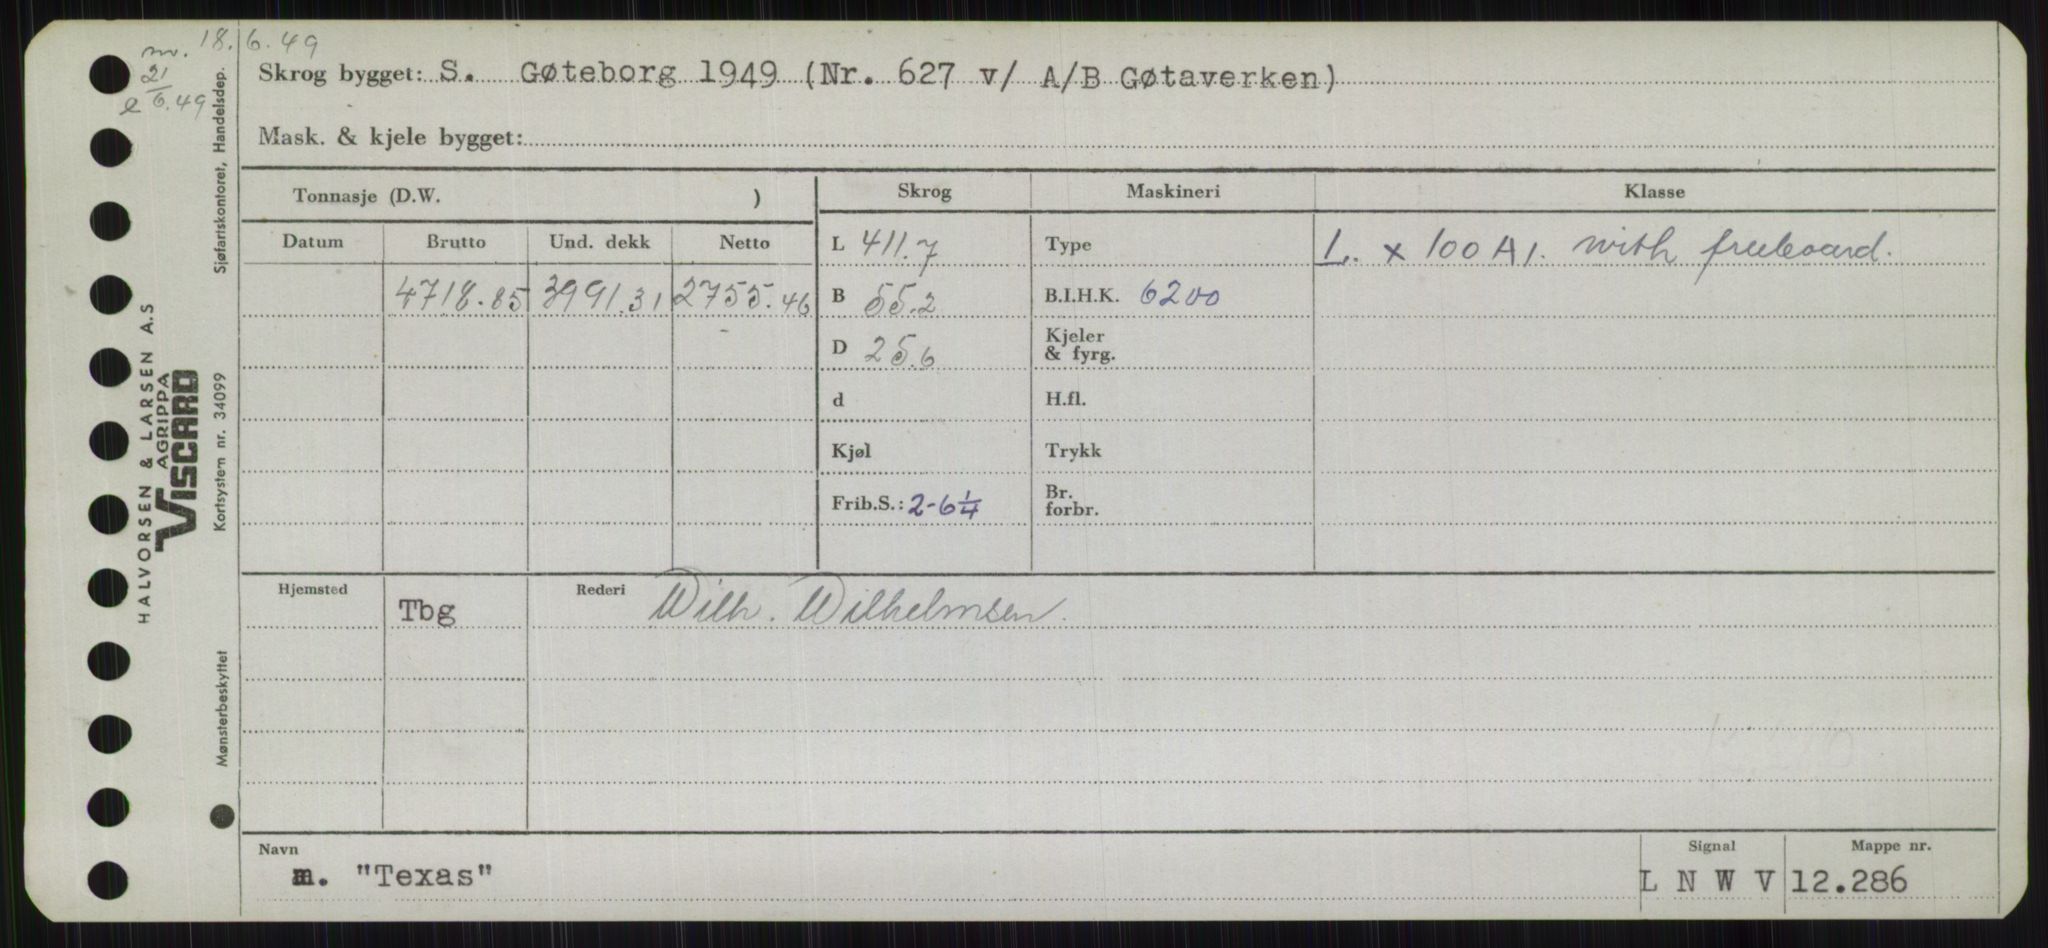 nv. 18.6.49
21/6.49
Skrog bygget: S. Gøteborg 1949 (Nr. 627 v/ A/B Gøtaverken)
Mask. & kjele bygget:
Tonnasje (D.W. )
Skrog
Maskineri
Klasse
Datum
Brutto
Und. dekk
Netto
L 411.7
Type
L. x 100 A 1. with freeboard.
4718.85
3991.31
2755.46
B 55.2
B.I.H.K. 6200
D 25.6
Kjeler
& fyrg.
d
H.fl.
Kjøl
Trykk
Frib.S.: 2-6 1/4
Br.
forbr.
Hjemsted
Tbg
Rederi
Wilh. Wilhelmsen.
Navn
m. "Texas"
Signal
L N W V
Mappe nr.
12.286
HALVORSEN & LARSEN A.S
AGRIPPA
VISCARD
Sjøfartskontoret, Handelsdep.
Kortsystem nr. 34099
Mønsterbeskyttet